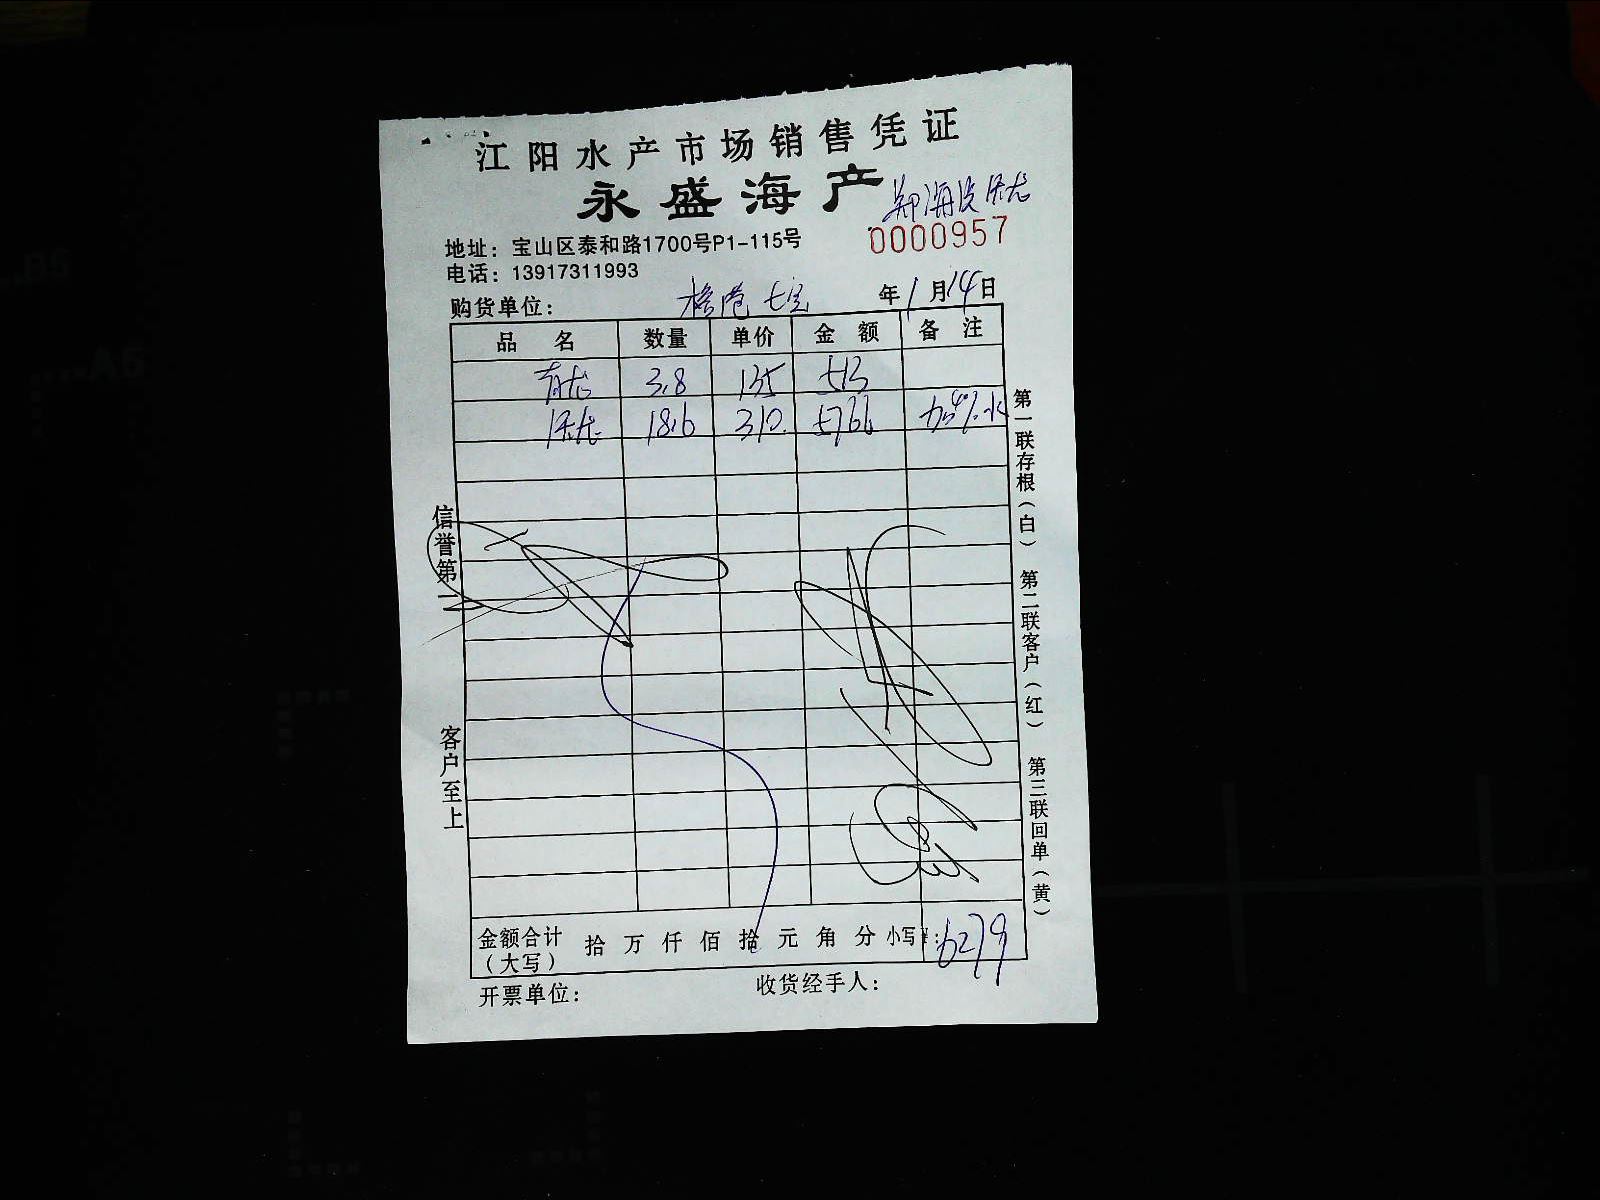 江阳水产市场销售凭证
永盛海产
郑海波 保龙
0000957
地址：宝山区泰和路1700号P1-115号
电话：13917311993
购货单位： 七宝 年1月14日
品 名 数量 单价 金 额 备 注
青龙 3.8 135 513
18.6 310 5766 加4%水
信誉第一 客户至上
第一联存根（白） 第二联客户（红） 第三联回单（黄）
金额合计（大写） 拾 万 仟 佰 拾 元 角 分 小写¥：6279
开票单位： 收货经手人：